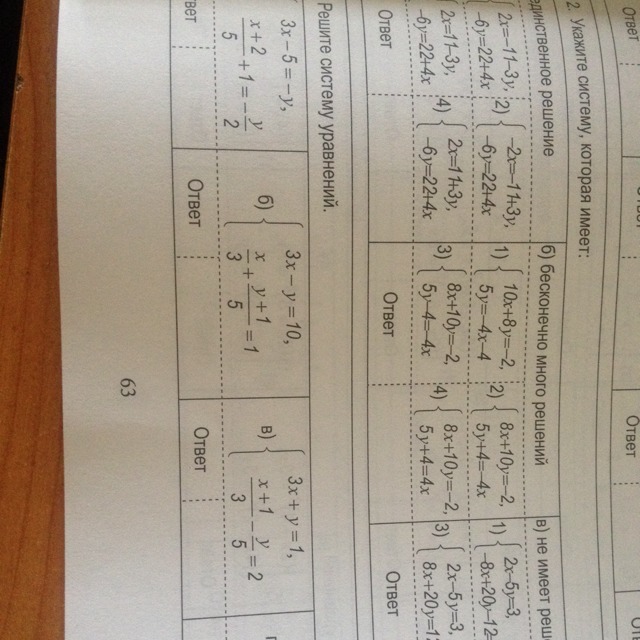 Ответ
Ответ
2. Укажите систему, которая имеет:
единственное решение
б) бесконечно много решений
в) не имеет реш
2x=-11-3y,
-6y=22+4x
2)
-2x=-11+3y,
-6y=22+4x
1)
10x+8y=-2,
5y=-4x-4
2)
8x+10y=-2,
5y+4=-4x
1)
2x-5y=3,
-8x+20y=12
2x=11-3y,
-6y=22+4x
4)
2x=11+3y,
-6y=22+4x
3)
8x+10y=-2,
5y-4=-4x
4)
8x+10y=-2,
5y+4=4x
3)
2x-5y=3
8x+20y=1
Ответ
Ответ
Ответ
Решите систему уравнений.
3x-5=-y,
x+2/5+1=-y/2
б)
3x-y=10,
x/3+y+1/5=1
в)
3x+y=1,
x+1/3-y/5=2
вет
Ответ
Ответ
63